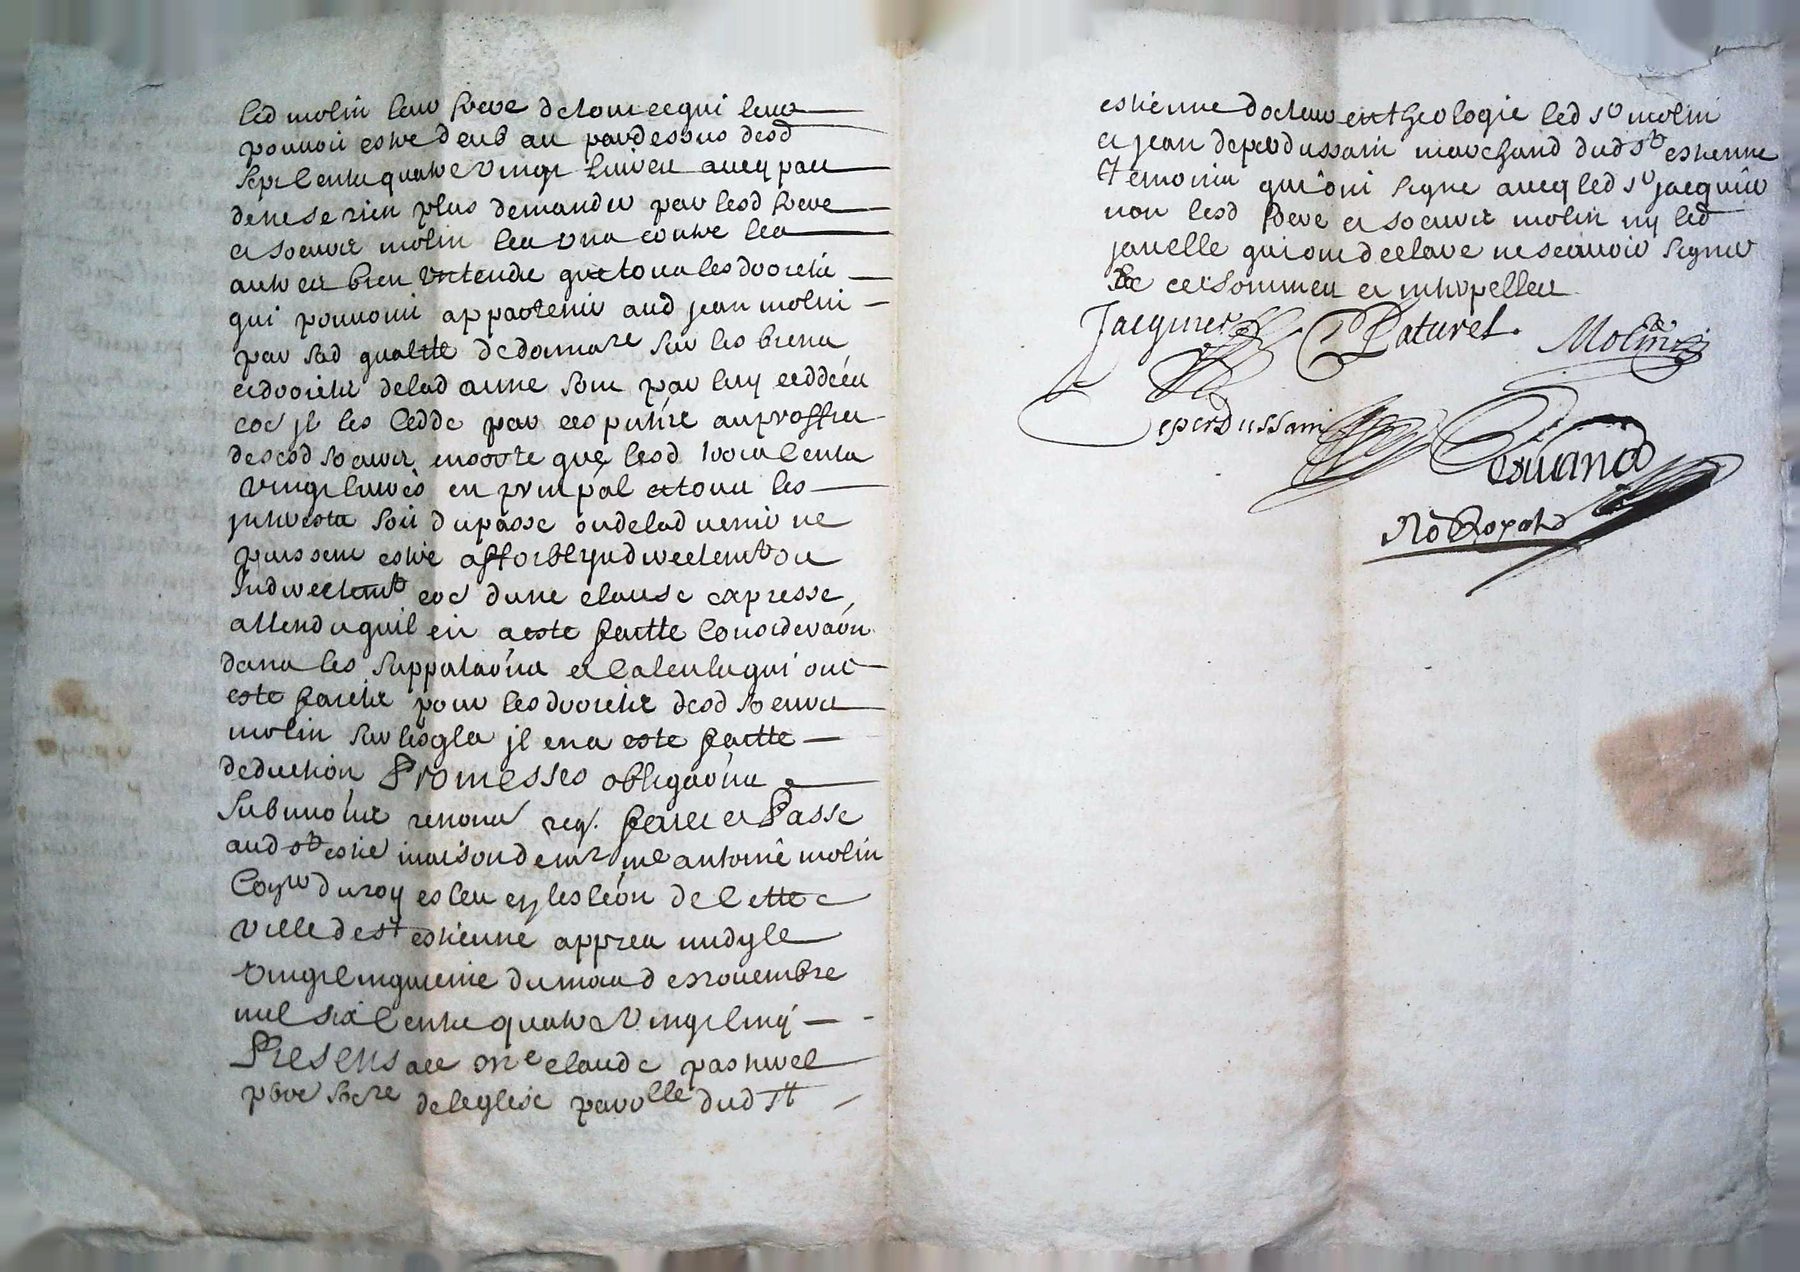 led molin leur frere de tout ce qui leur
pouvoit estre deub au pardessus desd
sept cents quatre vingt livres avecq pau
de ne se rien plus demander par lesd frere
et soeurs molin les uns contre les
autres bien entendu que tous les droicts
qui pouvoint appartenir aud jean molin
par sad qualitte de donnare sur les biens
et droicts de lad anne sont par luy ceddés
coe jl les cedde par ces pntes au proffict
desesd soeurs en sorte que lesd trois cents
vingt livres en prinpal et tous les
jnterests soit du passe ou de ladvenir ne
puissent estre affoibly directemt ou
Indirectemt coe dune clause expresse
attendu quil en a este faitte consideraon
dans les supputaons et calculs qui ont
este faicts pour les droicts desd soeurs
molin sur lesqls jl en a este faitte
deduction Promesses obligaons
submons renons req. faict et Passe
aud st estne maison de mre me antoine molin
Coyer du roy esleu en leslеon de cette
ville de st estienne appres midy le
vingt cinquieme du mois de novembre
mil six cents quatre vingt cinq
Presens a ce mre claude pasturel
pbre socre de leglise parolle dud st
estienne docteur en theologie led sr molin
et jean deperdussain marchand dud st estienne
temoins qui ont signe avecq led sr jacquier
non lesd frere et soeurs molin ny led
janelle qui ont declare ne scavoir signer
de ce sommes et interpelles
Jacquier Paturel Molin
Deperdussain
No Royal